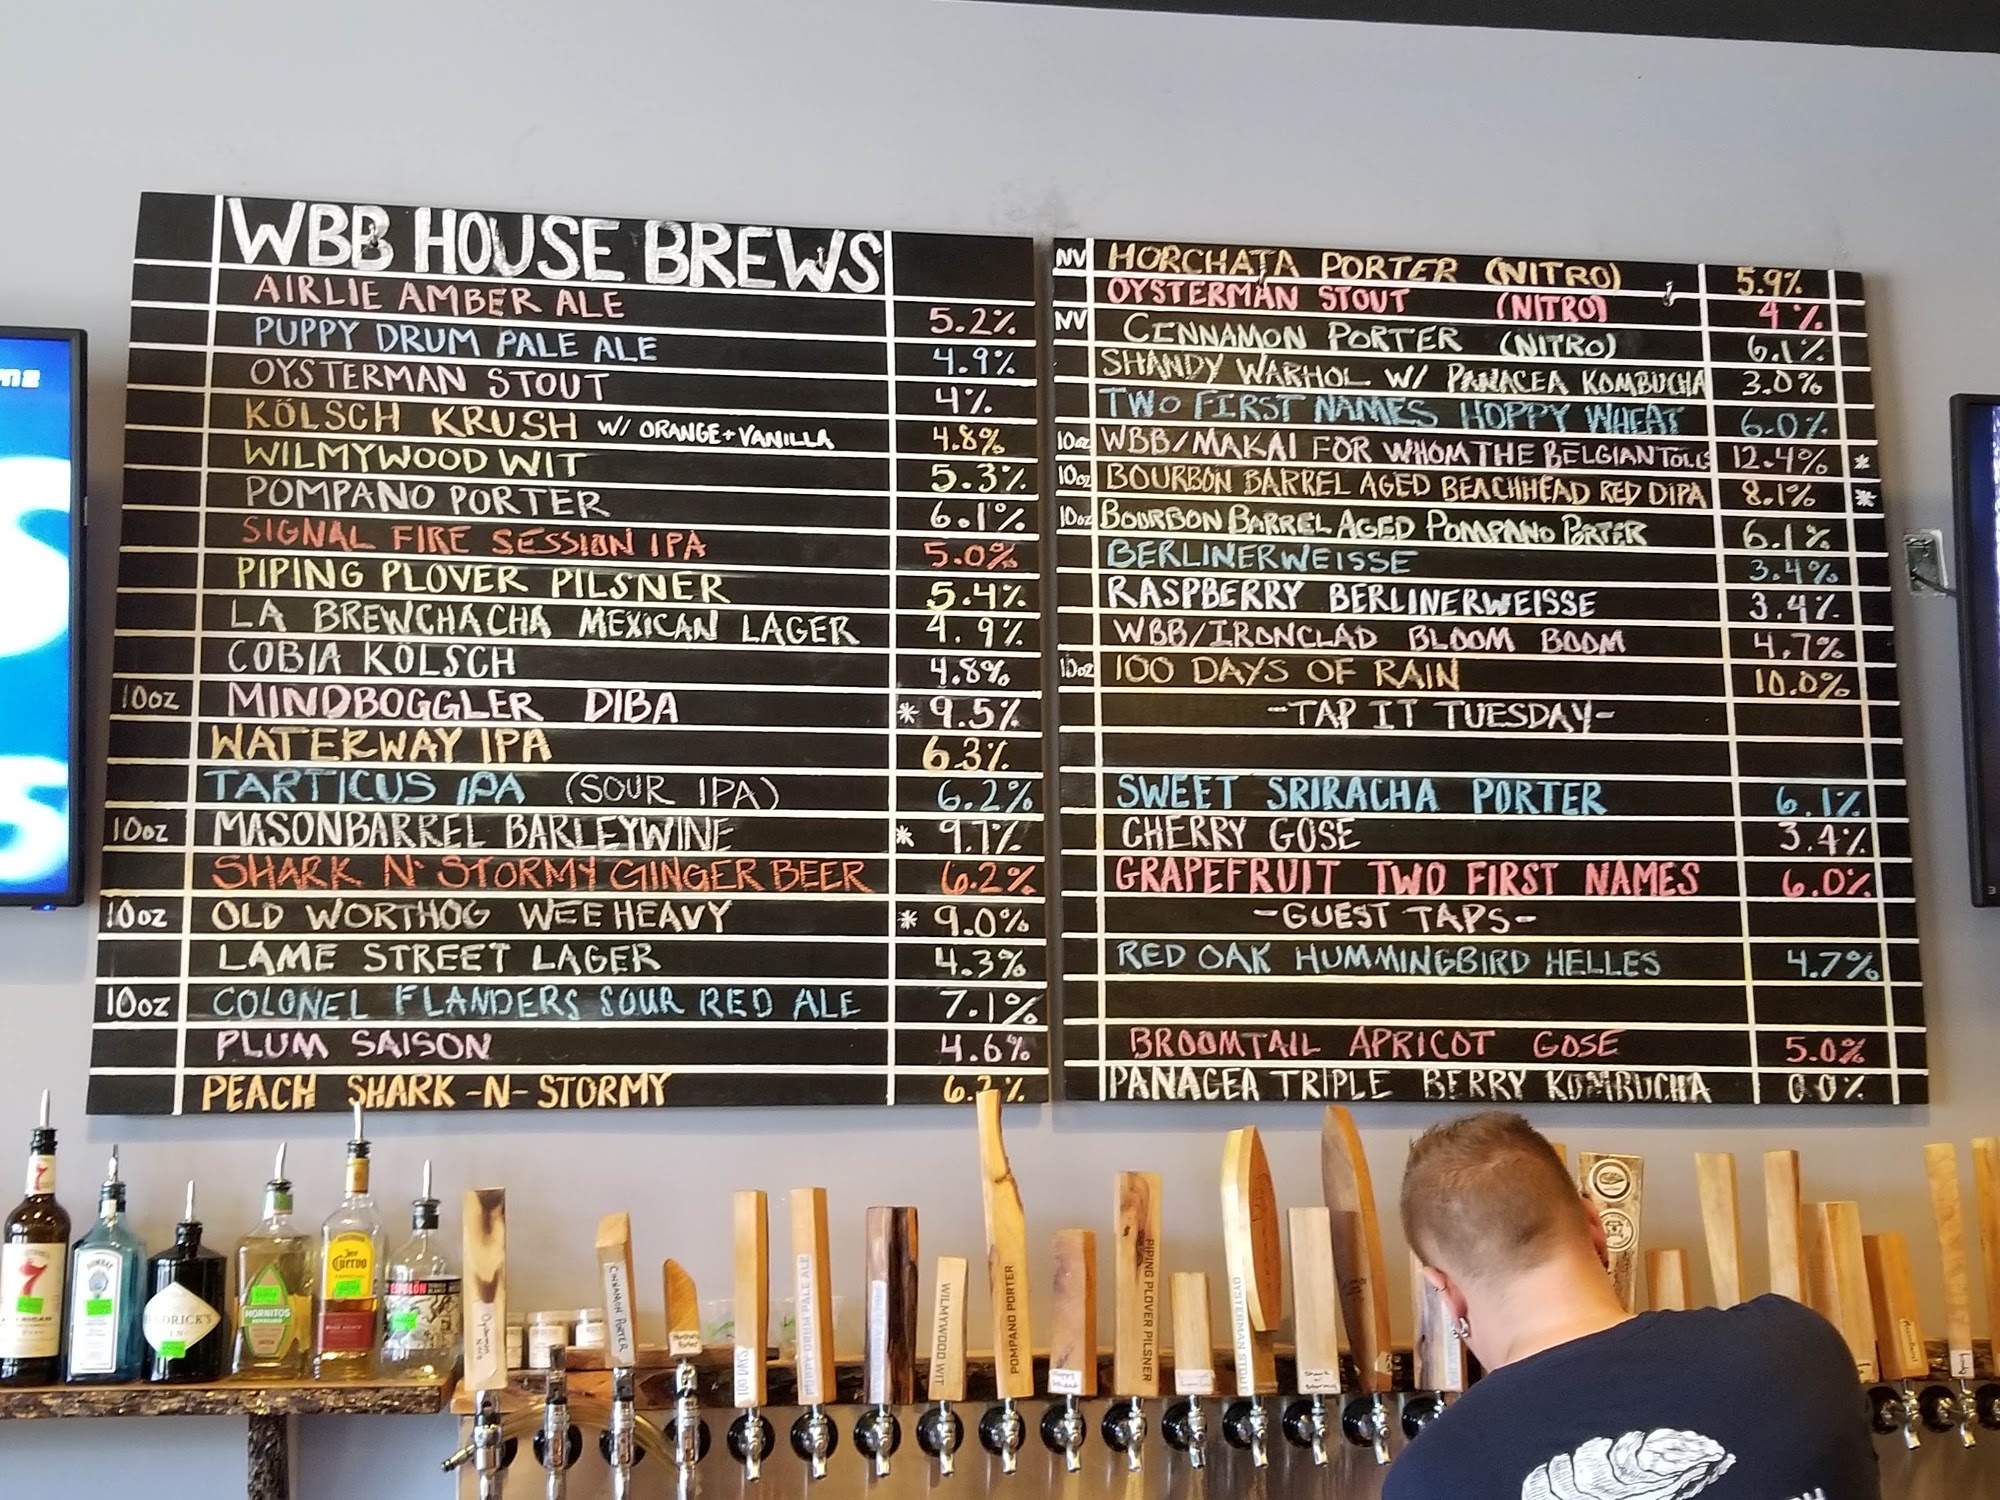 WBB HOUSE BREWS
AIRLIE AMBER ALE 5.2%
PUPPY DRUM PALE ALE 4.9%
OYSTERMAN STOUT 4%
KÖLSCH KRUSH W/ ORANGE + VANILLA 4.8%
WILMYWOOD WIT 5.3%
POMPANO PORTER 6.1%
SIGNAL FIRE SESSION IPA 5.0%
PIPING PLOVER PILSNER 5.4%
LA BREWCHACHA MEXICAN LAGER 4.9%
COBIA KÖLSCH 4.8%
10oz MINDBOGGLER DIBA * 9.5%
WATERWAY IPA 6.3%
TARTICUS IPA (SOUR IPA) 6.2%
10oz MASONBARREL BARLEYWINE * 9.1%
SHARK N' STORMY GINGER BEER 6.2%
10oz OLD WORTHOG WEE HEAVY * 9.0%
LAME STREET LAGER 4.3%
10oz COLONEL FLANDERS SOUR RED ALE 7.1%
PLUM SAISON 4.6%
PEACH SHARK-N-STORMY 6.2%
NV HORCHATA PORTER (NITRO) 5.9%
OYSTERMAN STOUT (NITRO) 4%
NV CINNAMON PORTER (NITRO) 6.1%
SHANDY WARHOL W/ PANACEA KOMBUCHA 3.0%
TWO FIRST NAMES HOPPY WHEAT 6.0%
10oz WBB/MAKAI FOR WHOM THE BELGIAN TOLLS 12.4% *
10oz BOURBON BARREL AGED BEACHHEAD RED DIPA 8.1% *
10oz BOURBON BARREL AGED POMPANO PORTER 6.1%
BERLINERWEISSE 3.4%
RASPBERRY BERLINERWEISSE 3.4%
WBB/IRONCLAD BLOOM BOOM 4.7%
10oz 100 DAYS OF RAIN 10.0%
-TAP IT TUESDAY-
SWEET SRIRACHA PORTER 6.1%
CHERRY GOSE 3.4%
GRAPEFRUIT TWO FIRST NAMES 6.0%
-GUEST TAPS-
RED OAK HUMMINGBIRD HELLES 4.7%
BROOMTAIL APRICOT GOSE 5.0%
PANACEA TRIPLE BERRY KOMBUCHA 0.0%
7
HENDRICK'S
HORNITOS
Jose Cuervo
ESPOLÓN
CINNAMON PORTER
Horchata Porter
100 DAYS
PUPPY DRUM PALE ALE
WILMYWOOD WIT
POMPANO PORTER
Hoppy Wheat
PIPING PLOVER PILSNER
OYSTERMAN STOUT
Shark n' Stormy